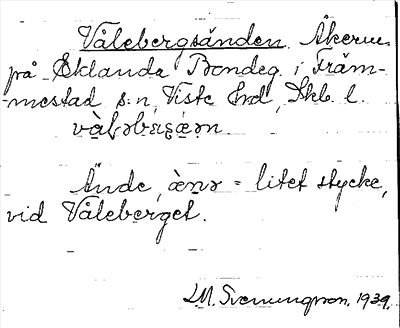 Vålebergsänden. Åkern
på Eklanda Bondeg. i Främ-
mestad s:n, Viste Hrd, Skb. l.
Ände, ànə = litet stycke,
vid Våleberget.
L.M. Svenungsson. 1939.